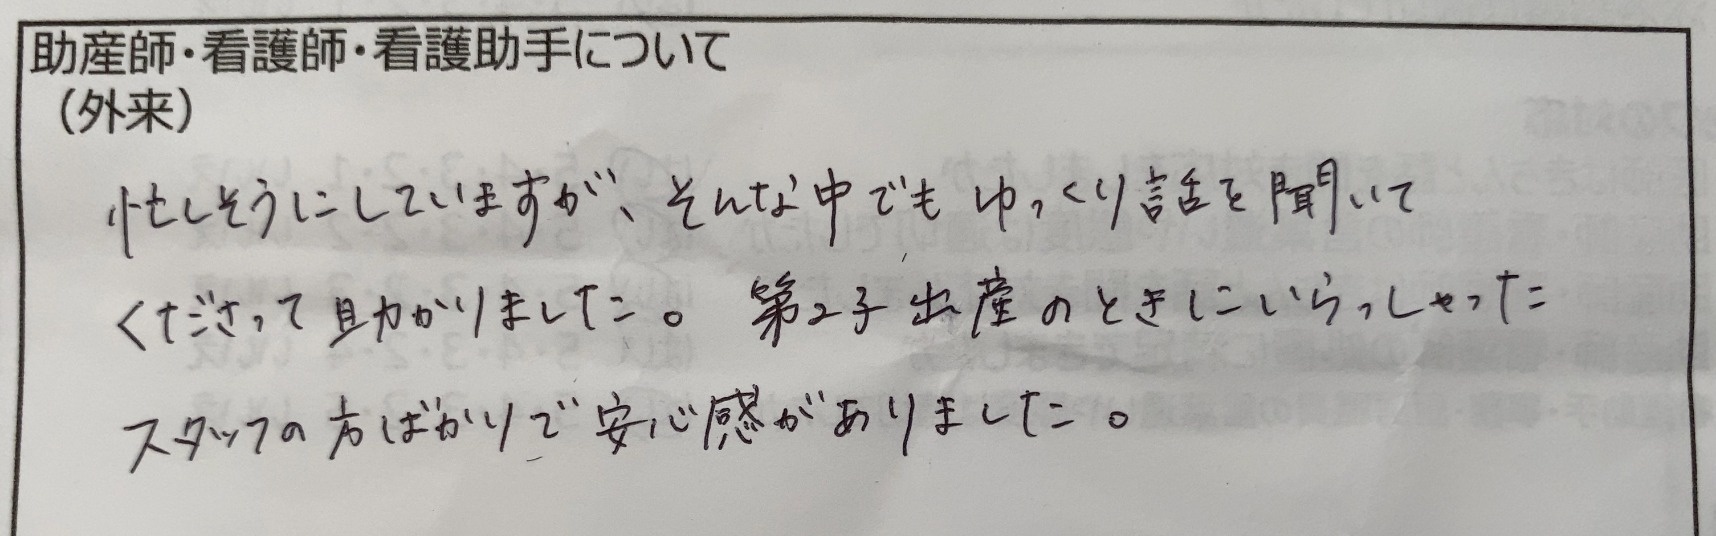 助産師・看護師・看護助手について
（外来）
忙しそうにしていますが、そんな中でもゆっくり話を聞いて
くださって助かりました。 第2子出産のときにいらっしゃった
スタッフの方ばかりで安心感がありました。